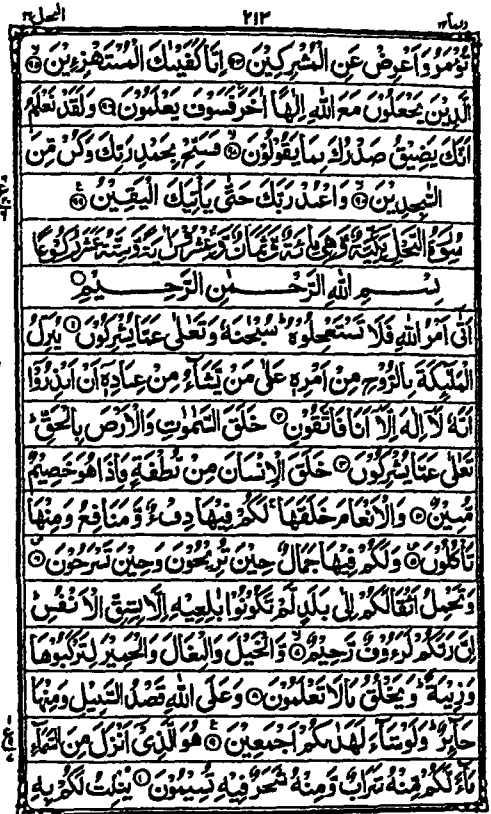 النحل ١٦ ٢١٣ ربما ١٤
تُؤْمَرُ وَاَعْرِضْ عَنِ الْمُشْرِكِيْنَ ﴿٩٤﴾ اِنَّا كَفَيْنٰكَ الْمُسْتَهْزِءِيْنَ ﴿٩٥﴾
الَّذِيْنَ يَجْعَلُوْنَ مَعَ اللّٰهِ اِلٰهًا اٰخَرَ فَسَوْفَ يَعْلَمُوْنَ ﴿٩٦﴾ وَلَقَدْ نَعْلَمُ
اَنَّكَ يَضِيْقُ صَدْرُكَ بِمَا يَقُوْلُوْنَ ﴿٩٧﴾ فَسَبِّحْ بِحَمْدِ رَبِّكَ وَكُنْ مِّنَ
السّٰجِدِيْنَ ﴿٩٨﴾ وَاعْبُدْ رَبَّكَ حَتّٰى يَاْتِيَكَ الْيَقِيْنُ ﴿٩٩﴾
سُوْرَةُ النَّحْلِ مَكِّيَّةٌ وَّهِىَ مِائَةٌ وَّثَمَانٌ وَّعِشْرُوْنَ اٰيَةً وَّسِتَّةَ عَشَرَ رُكُوْعًا
بِسْمِ اللّٰهِ الرَّحْمٰنِ الرَّحِيْمِ
اَتٰٓى اَمْرُ اللّٰهِ فَلَا تَسْتَعْجِلُوْهُ سُبْحٰنَهٗ وَتَعٰلٰى عَمَّا يُشْرِكُوْنَ ﴿١﴾ يُنَزِّلُ
الْمَلٰٓئِكَةَ بِالرُّوْحِ مِنْ اَمْرِهٖ عَلٰى مَنْ يَّشَآءُ مِنْ عِبَادِهٖٓ اَنْ اَنْذِرُوْٓا
اَنَّهٗ لَآ اِلٰهَ اِلَّآ اَنَا فَاتَّقُوْنِ ﴿٢﴾ خَلَقَ السَّمٰوٰتِ وَالْاَرْضَ بِالْحَقِّ
تَعٰلٰى عَمَّا يُشْرِكُوْنَ ﴿٣﴾ خَلَقَ الْاِنْسَانَ مِنْ نُّطْفَةٍ فَاِذَا هُوَ خَصِيْمٌ
مُّبِيْنٌ ﴿٤﴾ وَالْاَنْعَامَ خَلَقَهَا لَكُمْ فِيْهَا دِفْءٌ وَّمَنَافِعُ وَمِنْهَا
تَاْكُلُوْنَ ﴿٥﴾ وَلَكُمْ فِيْهَا جَمَالٌ حِيْنَ تُرِيْحُوْنَ وَحِيْنَ تَسْرَحُوْنَ ﴿٦﴾
وَتَحْمِلُ اَثْقَالَكُمْ اِلٰى بَلَدٍ لَّمْ تَكُوْنُوْا بٰلِغِيْهِ اِلَّا بِشِقِّ الْاَنْفُسِ
اِنَّ رَبَّكُمْ لَرَءُوْفٌ رَّحِيْمٌ ﴿٧﴾ وَّالْخَيْلَ وَالْبِغَالَ وَالْحَمِيْرَ لِتَرْكَبُوْهَا
وَزِيْنَةً وَيَخْلُقُ مَا لَا تَعْلَمُوْنَ ﴿٨﴾ وَعَلَى اللّٰهِ قَصْدُ السَّبِيْلِ وَمِنْهَا
جَآئِرٌ وَلَوْ شَآءَ لَهَدٰىكُمْ اَجْمَعِيْنَ ﴿٩﴾ هُوَ الَّذِيْٓ اَنْزَلَ مِنَ السَّمَآءِ
مَآءً لَّكُمْ مِّنْهُ شَرَابٌ وَّمِنْهُ شَجَرٌ فِيْهِ تُسِيْمُوْنَ ﴿١٠﴾ يُنْۢبِتُ لَكُمْ بِهِ